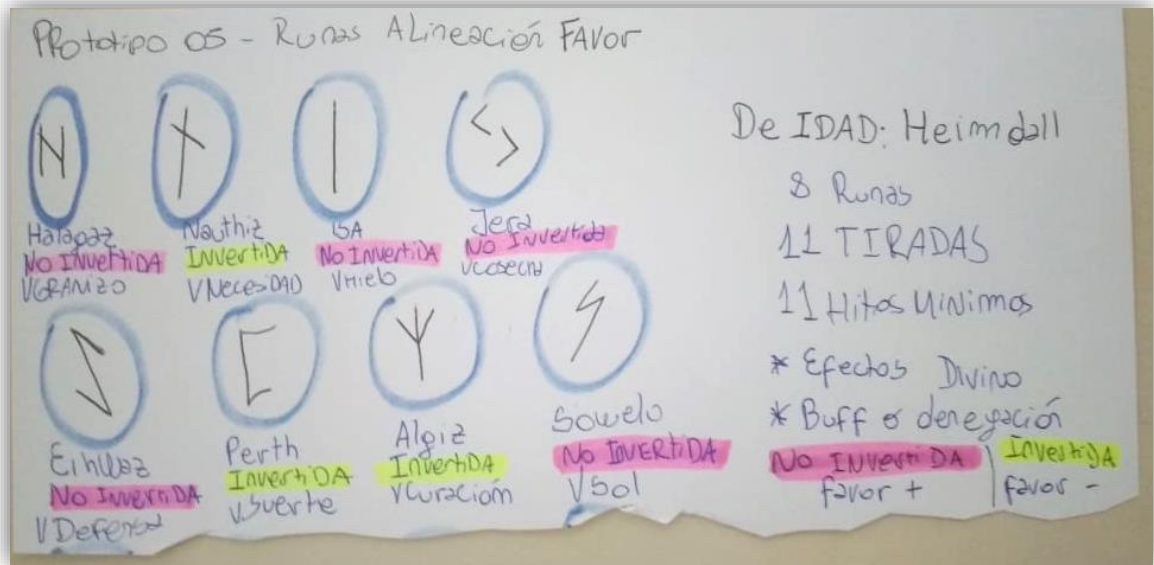 PROtotipo 05 - RUNAS ALineación FAVor
Halagaz
No INVertiDA
VGRANIZO
Nauthiz
INVertiDA
VNecesiDAD
ISA
No InvertiDA
VHielo
Jera
No Invertida
Vcosecha
Eihwaz
No InverTiDA
VDefensa
Perth
INVertiDA
V.Suerte
Algiz
InvertiDA
VCuración
Sowelo
No INVERTiDA
VSol
DeIDAD: Heimdall
8 Runas
11 TIRADAS
11 Hitos MiNimos
* Efectos Divino
* Buff o denegación
No INVertiDA | InvertiDA
favor + | favor -